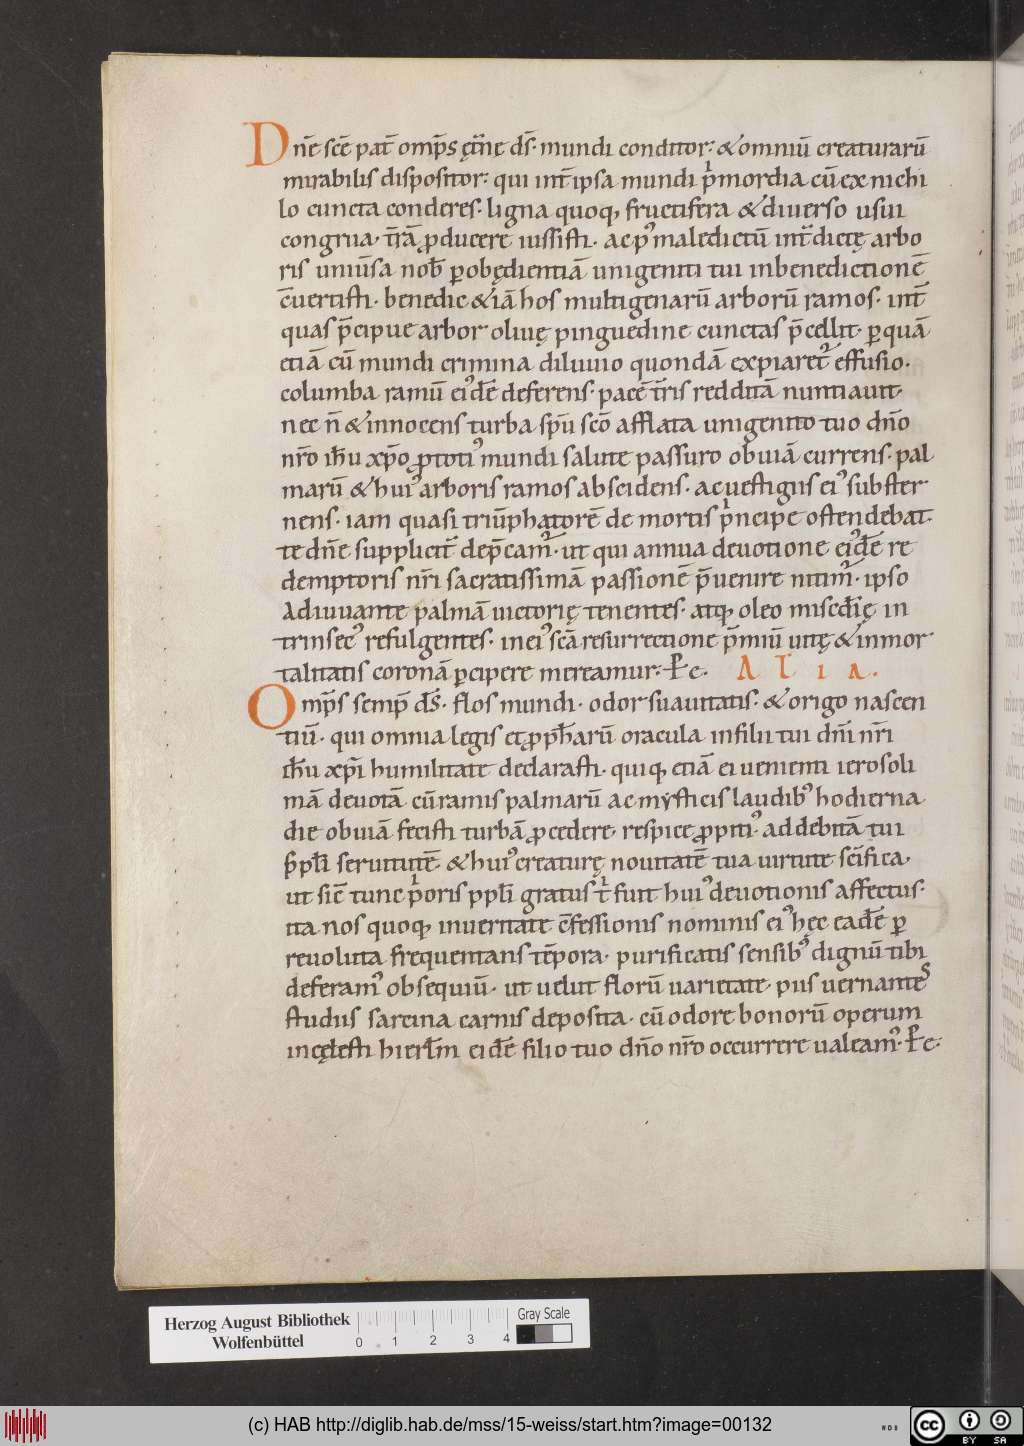 Dn̄e sc̄e pat̄ omp̄s ęt̄nę ds̄· mundi conditor: & omniū creaturarū
mirabilis dispositor: qui int̄ ipsa mundi p̍mordia cū ex nichi
lo cuncta conderes· ligna quoq; fructifera & diuerso usui
congrua· t̄rā ꝓducere iussisti· ac pꝰ maledictū int̄dictę arbo
ris uniūsa nob̄ ꝑ obędientiā unigeniti tui in benedictionē
c̄uertisti· benedic & iā hos multigenarū arborū ramos· int̄
quas p̄cipue arbor oliuę pinguedine cunctas p̄cellit· ꝑ quā
etiā cū mundi crimina diluuio quondā expiaret᷑ effusio·
columba ramū eiꝰdē deferens· pacē t̄ris redditā nuntiauit·
nec n̄ & innocens turba sp̄u sc̄o afflata unigenito tuo dn̄o
nr̄o ih̄u xp̄o ꝓ totiꝰ mundi salute passuro obuiā currens· pal
marū & huiꝰ arboris ramos abscidens· ac uestigiis eiꝰ subster
nens· iam quasi triūphatorē de mortis p̍ncipe ostendebat·
te dn̄e supplicit̄ dep̄cam᷑· ut qui annua deuotione eiꝰdē re
demptoris nr̄i sacratissimā passionē p̄uenire nitim᷑· ipso
adiuuante palmā uictorię tenentes· atq; oleo misc̄dię in
trinsecꝰ refulgentes· in eiꝰ sc̄a resurrectione p̄miū uitę & inmor
talitatis coronā ꝑcipere mereamur· P̄c. ALIA.
Omp̄s semp̄ ds̄· flos mundi· odor suauitatis· & origo nascen
tiū· qui omnia legis et ꝓph̄arū oracula in filii tui dn̄i nr̄i
ih̄u xp̄i humilitate declarasti· quiq; etiā ei uenienti ierosoli
mā deuotā cū ramis palmarū ac mysticis laudibꝰ hodierna
die obuiā fecisti turbā ꝓcedere· respice ꝓpitiꝰ ad debitā tui
p̄pl̄i seruitutē· & huiꝰ creaturę nouitatē tua uirtute sc̄ifica·
ut sic̄ tunc p̍oris ppl̄i gratus t̍ fuit huiꝰ deuotionis affectus·
ita nos quoq; in ueritate c̄fessionis nominis eiꝰ hęc eadē ꝑ
reuoluta frequentans tēpora· purificatis sensibꝰ dignū tibi
deferamꝰ obsequiū· ut uelut florū uarietate· piis uernantes
studiis sarcina carnis deposita· cū odore bonorū operum
in cęlesti hierl̄m eidē filio tuo dn̄o nr̄o occurrere ualeamꝰ· P̄c·
Herzog August Bibliothek
Wolfenbüttel
0 1 2 3 4
Gray Scale
(c) HAB http://diglib.hab.de/mss/15-weiss/start.htm?image=00132
cc BY SA